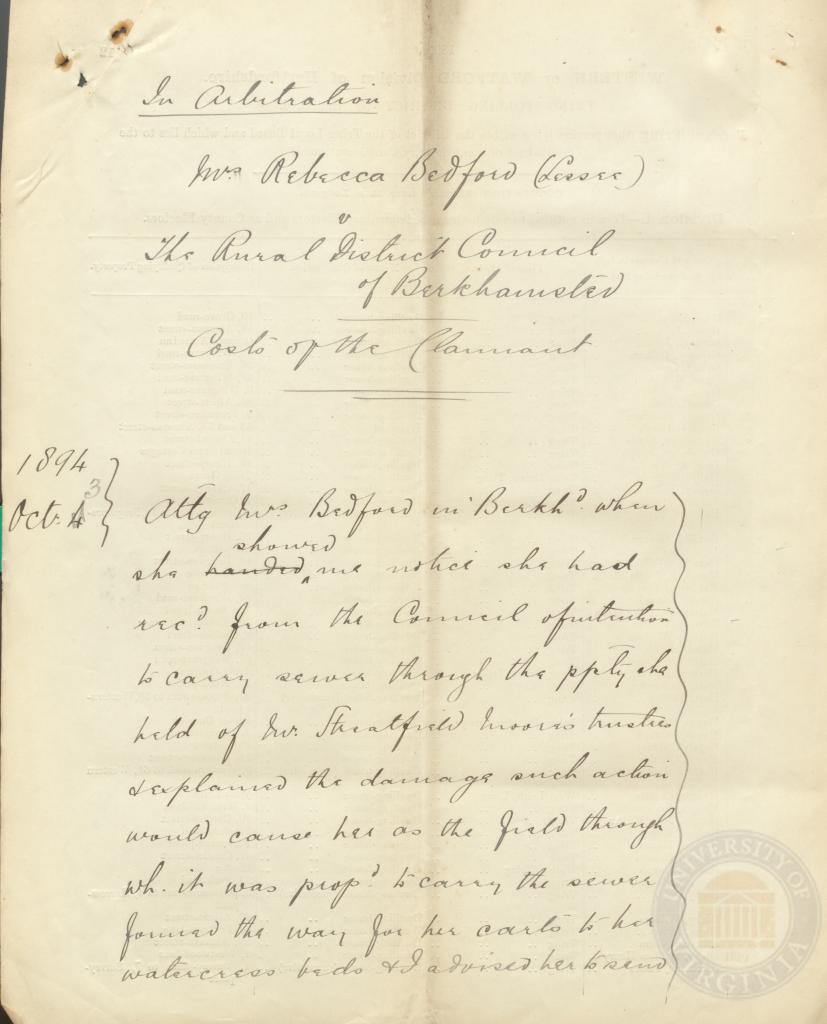 In Arbitration
Mrs Rebecca Bedford (Lessee)
v
The Rural District Council
of Berkhamsted
Costs of the Claimant
1894
Octr. 4 3
Attg Mrs Bedford in Berkhd. when
showed
she handed me notice she had
recd. from the Council of intention
to carry sewer through the ppty she
held of Mr. Streatfield Moore's trustees
& explained the damage such action
would cause her as the field through
wh. it was propd to carry the sewer
formed the way for her carts to her
watercress beds & I advised her to send
UNIVERSITY OF VIRGINIA